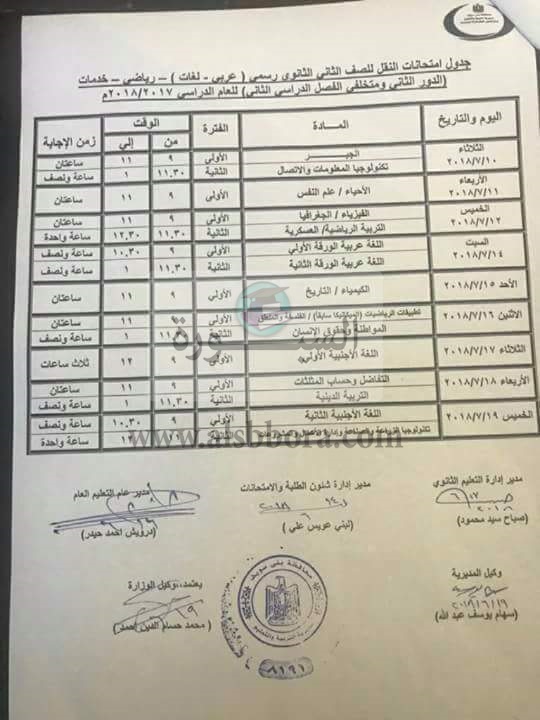 جدول امتحانات النقل للصف الثاني الثانوي رسمي ( عربي - لغات ) – رياضي – خدمات
(الدور الثاني ومتخلفي الفصل الدراسي الثاني) للعام الدراسي ٢٠١٨/٢٠١٧م
اليوم والتاريخ المـــادة الفترة الوقت زمن الإجابة
من إلي
الثلاثاء ٢٠١٨/٧/١٠ الجبـــر الأولى ٩ ١١ ساعتان
تكنولوجيا المعلومات والاتصال الثانية ١١,٣٠ ١ ساعة ونصف
الأربعاء ٢٠١٨/٧/١١ الأحياء / علم النفس الأولى ٩ ١١ ساعتان
الخميس ٢٠١٨/٧/١٢ الفيزياء / الجغرافيا الأولى ٩ ١١ ساعتان
التربية الرياضية/ العسكرية الثانية ١١,٣٠ ١٢,٣٠ ساعة واحدة
السبت ٢٠١٨/٧/١٤ اللغة عربية الورقة الأولي الأولي ٩ ١٠,٣٠ ساعة ونصف
اللغة عربية الورقة الثانية الثانية ١١,٣٠ ١ ساعة ونصف
الأحد ٢٠١٨/٧/١٥ الكيمياء / التاريخ الأولي ٩ ١١ ساعتان
الاثنين ٢٠١٨/٧/١٦ تطبيقات الرياضيات (الميكانيكا سابقا) / الفلسفة والمنطق الأولي ١١ ساعتان
المواطنة وحقوق الإنسان الثانية ١ ساعة ونصف
الثلاثاء ٢٠١٨/٧/١٧ اللغة الأجنبية الأولي الأولي ٩ ١٢ ثلاث ساعات
الأربعاء ٢٠١٨/٧/١٨ التفاضل وحساب المثلثات الأولي ٩ ١١ ساعتان
التربية الدينية الثانية ١١,٣٠ ١ ساعة ونصف
الخميس ٢٠١٨/٧/١٩ اللغة الأجنبية الثانية الأولي ٩ ١٠,٣٠ ساعة ونصف
تكنولوجيا الزراعة والصناعة وإدارة الأعمال ساعة واحدة
السبورة
www.alsbbora.com
مدير إدارة التعليم الثانوي مدير إدارة شئون الطلبة والامتحانات مدير عام التعليم العام
(صباح سيد محمود) ( لبني عويس علي ) (درويش احمد حيدر)
وكيل المديرية يعتمد،، وكيل الوزارة
٢٠١٨/٦/١٩
(سهام يوسف عبد الله) ( محمد حسام الدين أحمد)
محافظة بني سويف
مديرية التربية والتعليم
٨١٩١